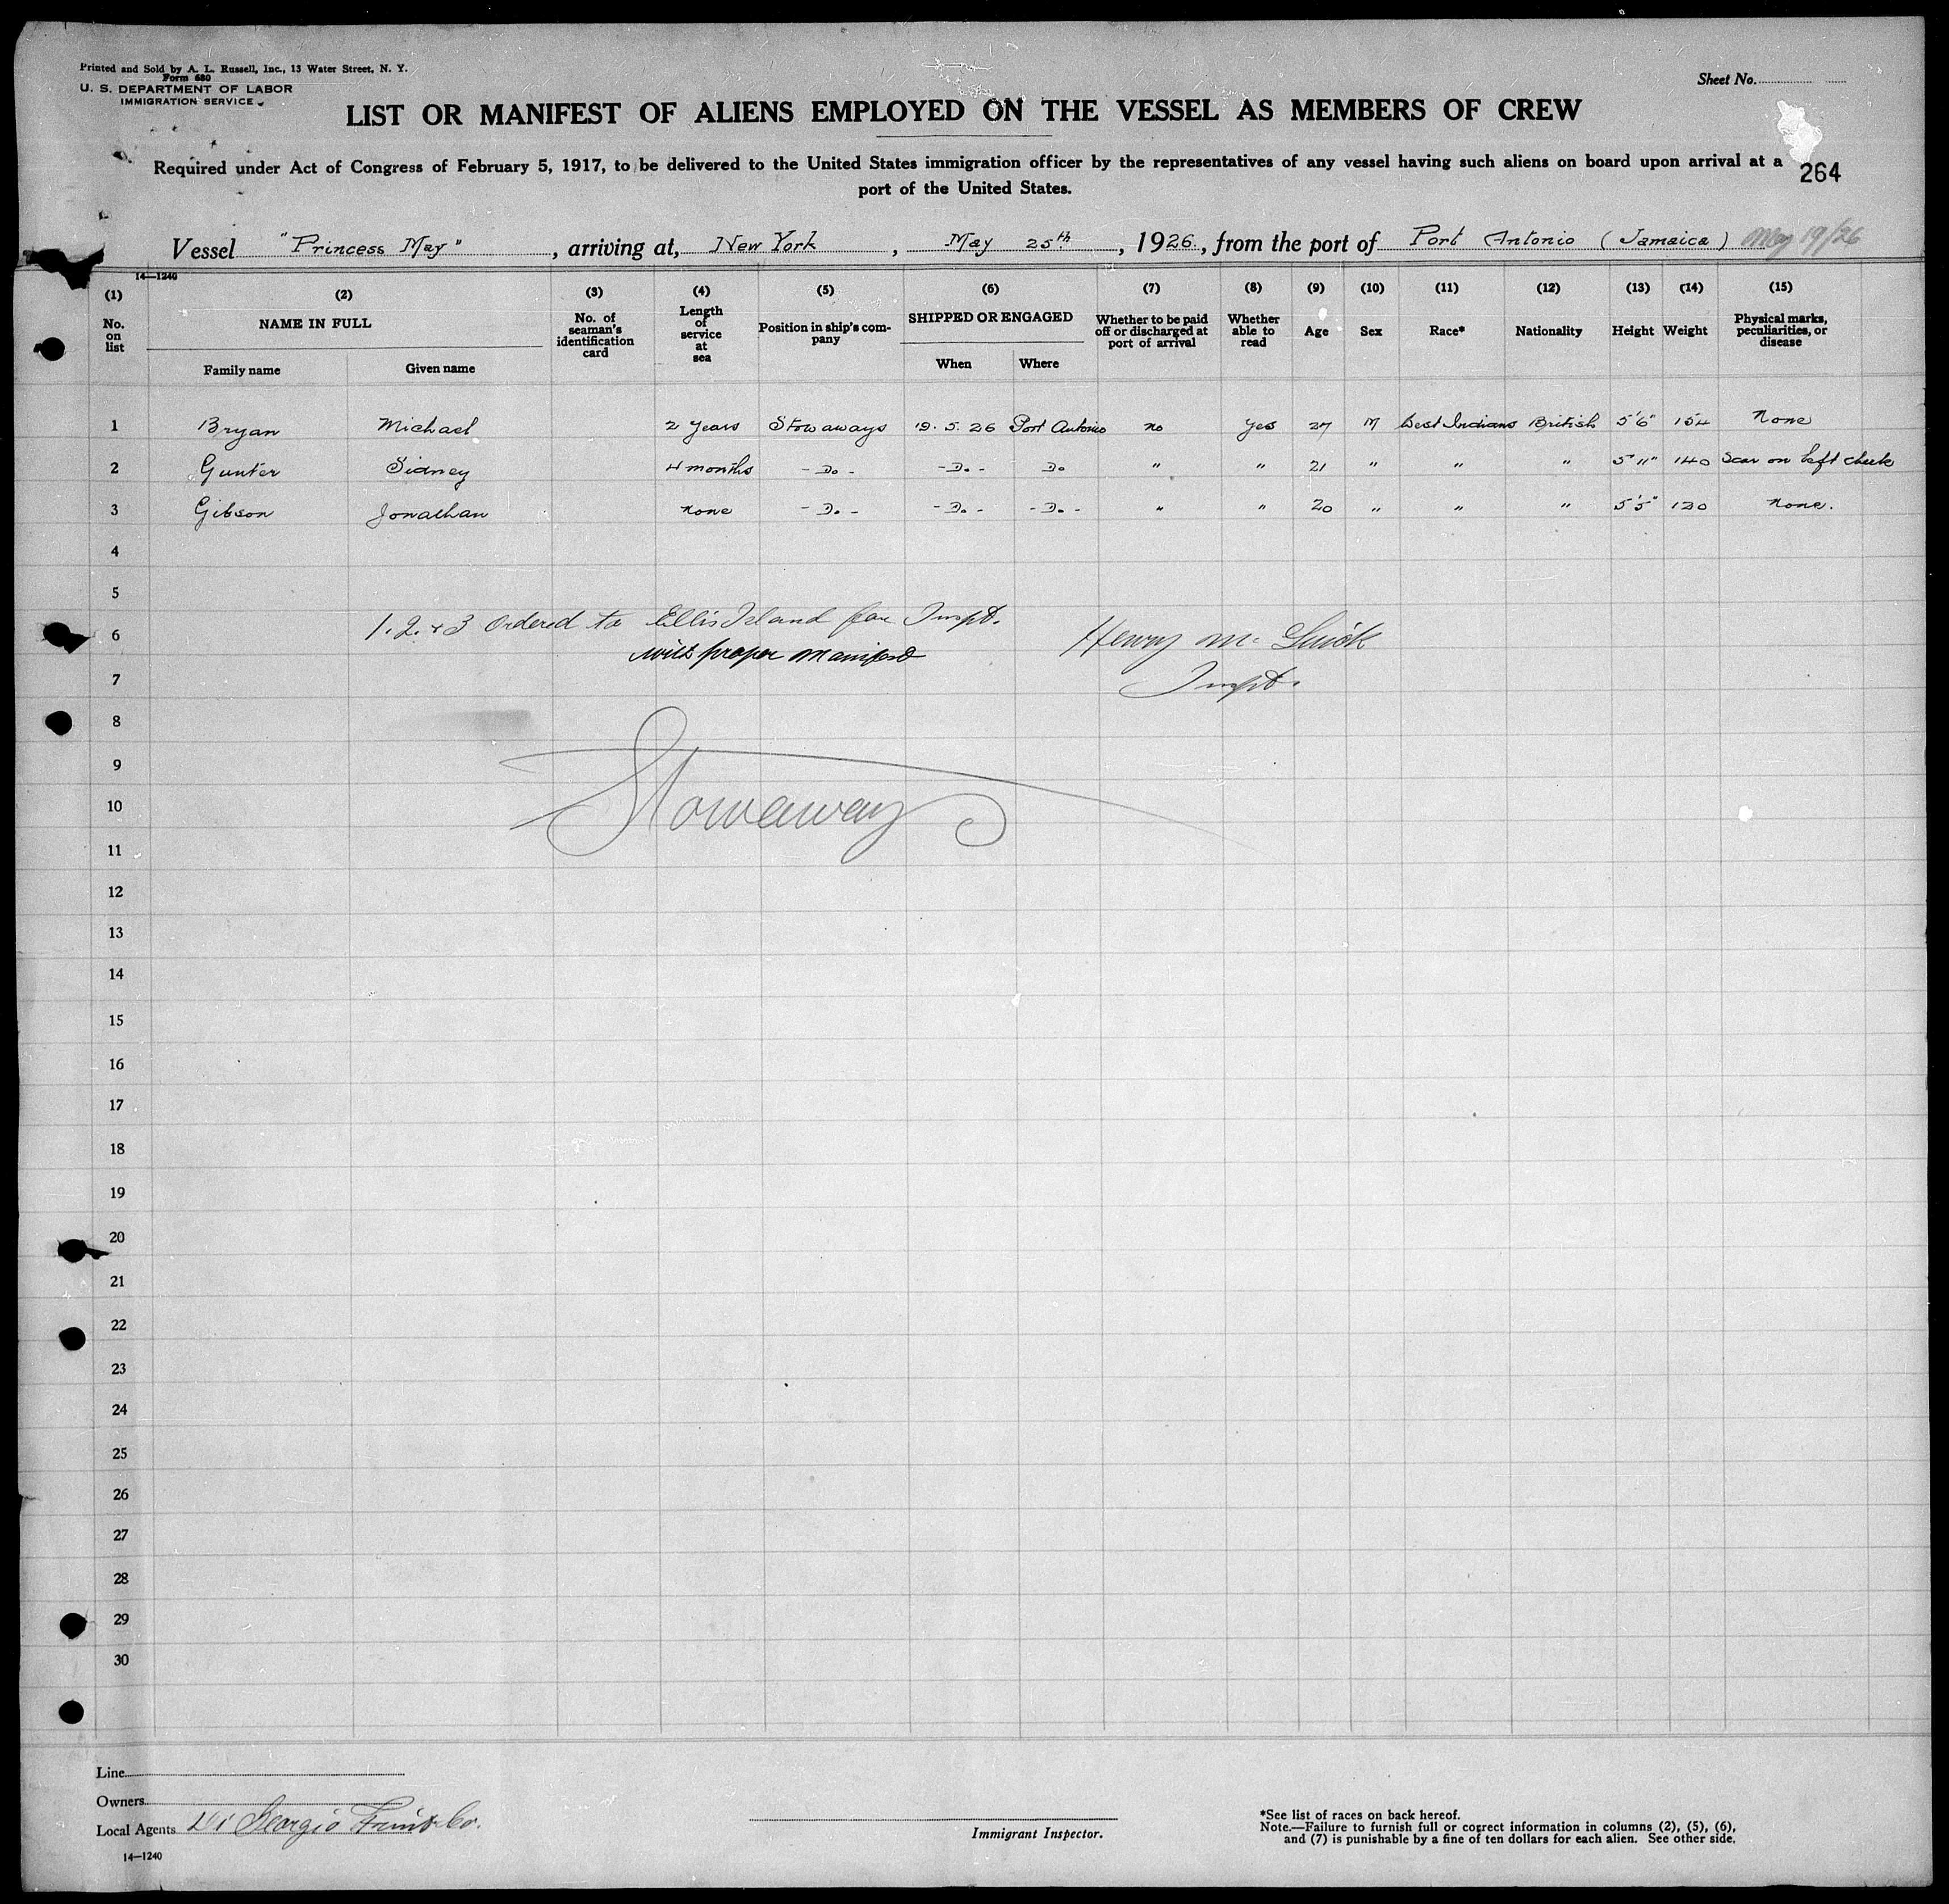 Printed and Sold by A. L. Russell, Inc., 13 Water Street, N. Y.
Form 680
U. S. DEPARTMENT OF LABOR
IMMIGRATION SERVICE
Sheet No.
LIST OR MANIFEST OF ALIENS EMPLOYED ON THE VESSEL AS MEMBERS OF CREW
Required under Act of Congress of February 5, 1917, to be delivered to the United States immigration officer by the representatives of any vessel having such aliens on board upon arrival at a
port of the United States.
264
Vessel "Princess May", arriving at, New York, May 25th, 1926, from the port of Port Antonio (Jamaica) May 19/26
14—1240
(1) (2) (3) (4) (5) (6) (7) (8) (9) (10) (11) (12) (13) (14) (15)
No. on list
NAME IN FULL
Family name Given name
No. of seaman's identification card
Length of service at sea
Position in ship's company
SHIPPED OR ENGAGED
When Where
Whether to be paid off or discharged at port of arrival
Whether able to read
Age
Sex
Race*
Nationality
Height
Weight
Physical marks, peculiarities, or disease
1 Bryan Michael 2 years Stowaways 19.5.26 Port Antonio no yes 27 M West Indians British 5'6" 154 None
2 Gunter Sidney 4 months - Do - - Do - Do " " 21 " " " 5'11" 140 Scar on left cheek
3 Gibson Jonathan none - Do - - Do - - Do - " " 20 " " " 5'5" 120 None.
4
5
6
7
8
9
10
11
12
13
14
15
16
17
18
19
20
21
22
23
24
25
26
27
28
29
30
1. 2. + 3 Ordered to Ellis Island for Inspt.
with proper manifest
Henry Mc
Inspt.
Stowaways
Line
Owners
Local Agents Di Georgio Fruit Co.
14—1240
Immigrant Inspector.
*See list of races on back hereof.
Note.—Failure to furnish full or correct information in columns (2), (5), (6),
and (7) is punishable by a fine of ten dollars for each alien. See other side.